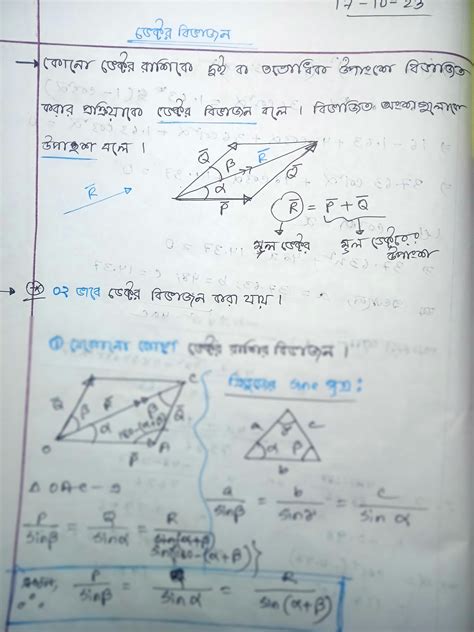 17-10-23
ভেক্টর বিভাজন
→ কোনো ভেক্টর রাশিকে দুই বা ততোধিক উপাংশে বিভাজিত
করার প্রক্রিয়াকে ভেক্টর বিভাজন বলে । বিভাজিত অংশগুলোকে
উপাংশ বলে ।
Q̄ β R̄
α
P̄
R̄
R̄ = P̄ + Q̄
মূল ভেক্টর মূল ভেক্টরের উপাংশ
→ ০২ ভাবে ভেক্টর বিভাজন করা যায় ।
① যেকোনো ভেক্টর রাশির বিভাজন ।
ত্রিভুজের sine সূত্র :
C
Q̄ β R̄ β Q̄
α 180-(α+β)
O P̄ A
a γ c
α β
b
Δ OAC-এ
a/sinβ = b/sinγ = c/sinα
P/sinβ = Q/sinα = R/sin{180-(α+β)}
∴ P/sinβ = Q/sinα = R/sin(α+β)